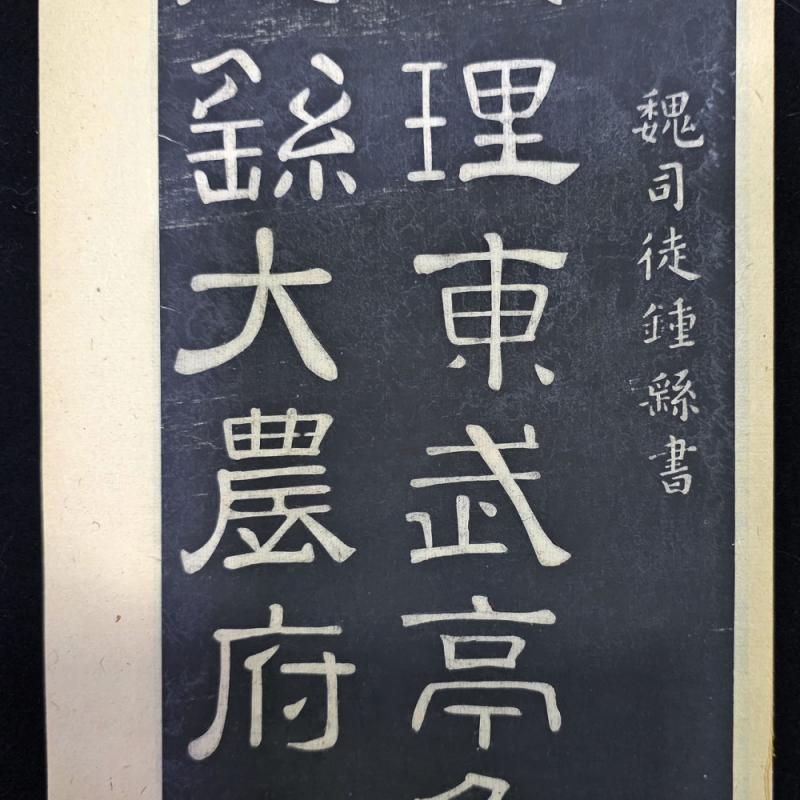 魏司徒鍾繇書
理東武亭
繇大農府